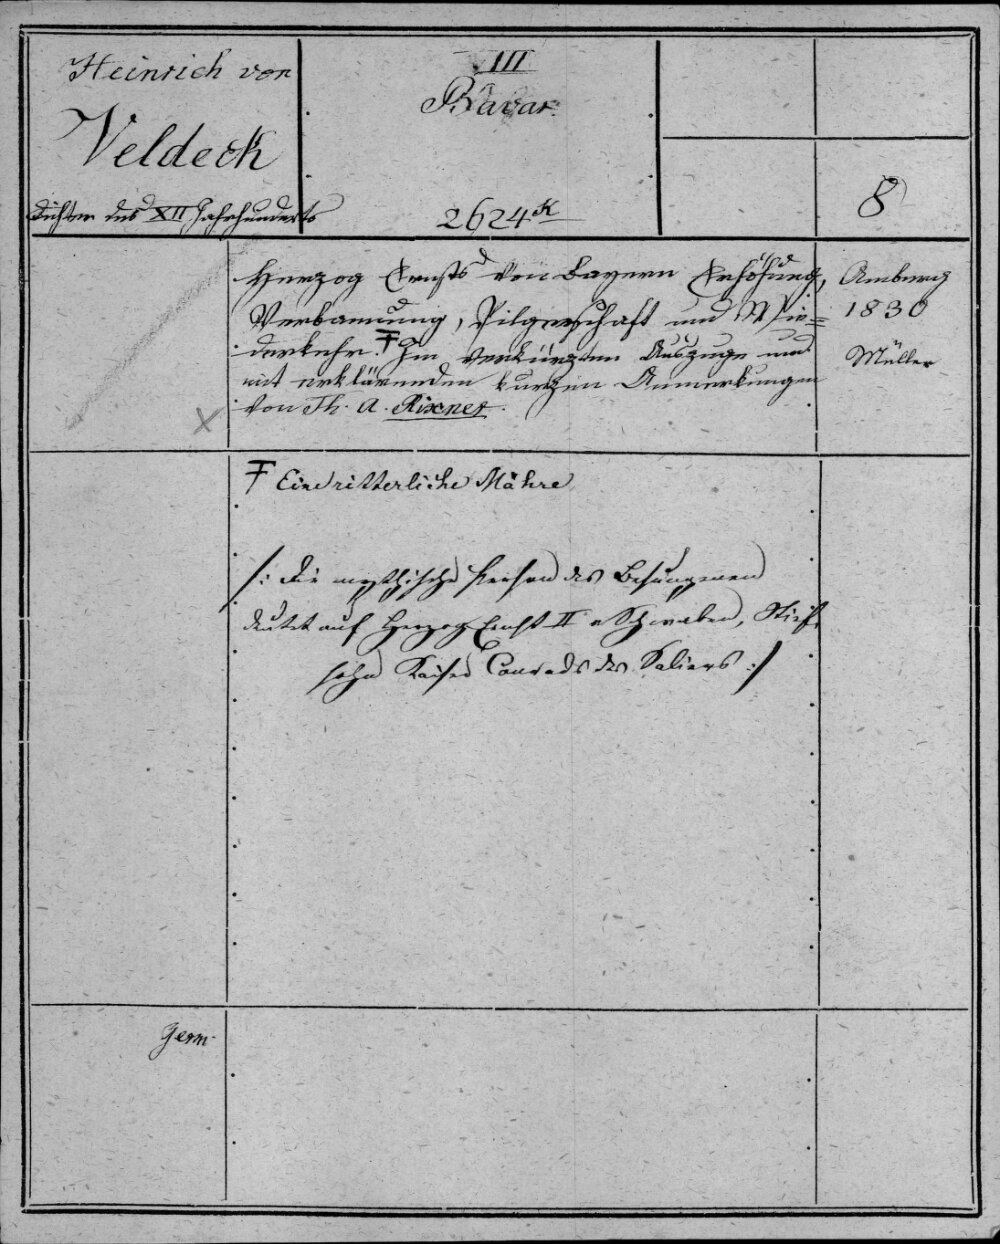 Heinrich von
Veldeck
Dichter des XII Jahrhunderts
III
Bavar.
2624 k
8
Herzog Ernsts von Bayern Erhöhung,
Verbannung, Pilgerschaft und Wie=
derkehr. Ŧ Im verkürzten Auszuge und
mit erklärenden kurzen Anmerkungen
von Th. A. Rixner.
Amberg
1830
Müller
Ŧ Eine ritterliche Mähre
/: die mythische Person des Besungenen
deutet auf Herzog Ernst II v Schwaben, Stief-
sohn Kaiser Conrads des Saliers :/
Germ.